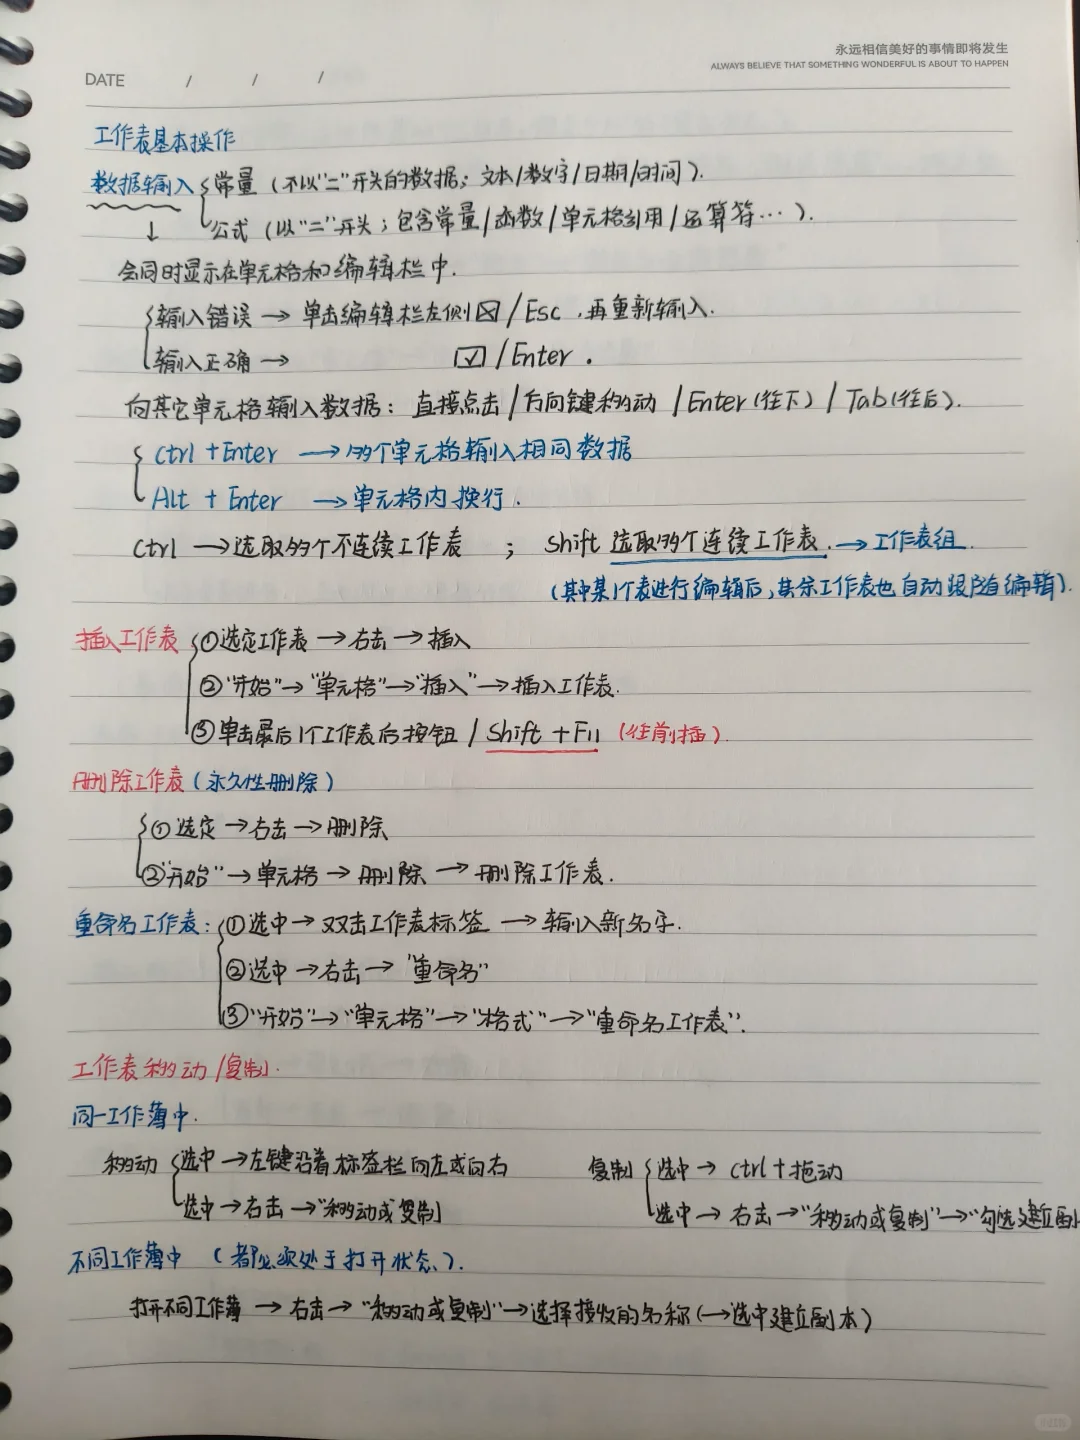 永远相信美好的事情即将发生
ALWAYS BELIEVE THAT SOMETHING WONDERFUL IS ABOUT TO HAPPEN
DATE / / /
工作表基本操作
数据输入 { 常量（不以"="开头的数据；文本/数字/日期/时间）.
↓ 公式（以"="开头；包含常量/函数/单元格引用/运算符…）.
会同时显示在单元格和编辑栏中.
{ 输入错误 → 单击编辑栏左侧☒/Esc，再重新输入.
输入正确 → ☑/Enter.
向其它单元格输入数据：直接点击/方向键移动/Enter(往下)/Tab(往后).
{ Ctrl+Enter → 多个单元格输入相同数据
Alt + Enter → 单元格内换行.
Ctrl → 选取多个不连续工作表 ； Shift 选取多个连续工作表. → 工作表组.
（其中某1个表进行编辑后，其余工作表也自动跟随编辑）.
插入工作表 { ①选定工作表 → 右击 → 插入
②"开始"→"单元格"→"插入"→插入工作表.
③单击最后1个工作表后按钮 / Shift+F11 （往前插）.
删除工作表（永久性删除）
{ ①选定 → 右击 → 删除
②"开始" → 单元格 → 删除 → 删除工作表.
重命名工作表: { ①选中 → 双击工作表标签 → 输入新名字.
②选中 → 右击 → "重命名"
③"开始"→"单元格"→"格式"→"重命名工作表".
工作表移动/复制.
同一工作薄中.
移动 { 选中 → 左键沿着标签栏向左或向右 复制 { 选中 → Ctrl+拖动
选中 → 右击 → "移动或复制" 选中 → 右击 → "移动或复制" → "勾选建立副
不同工作薄中 （都必须处于打开状态）.
打开不同工作薄 → 右击 → "移动或复制" → 选择接收的名称（→选中建立副本）